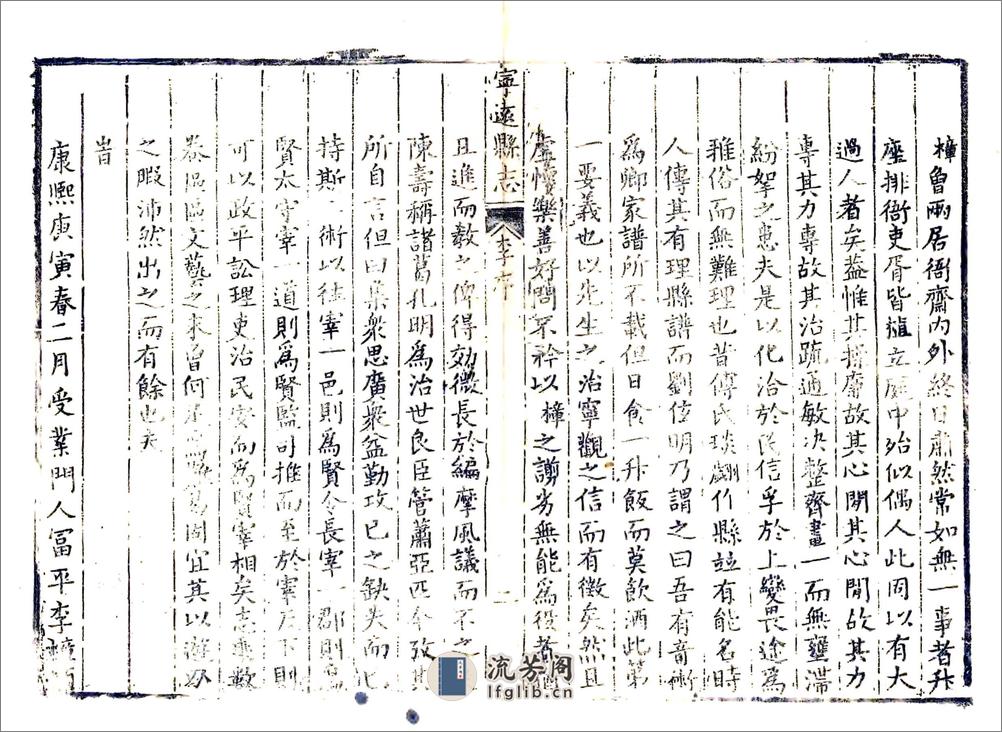 樟魯兩居衙齋內外終日肅然常如無一事者升
座排衙吏胥皆植立庭中殆似偶人此固以有大
過人者矣蓋惟其操廉故其心閒其心閒故其力
專其力專故其治疏通敏决整齊畫一而無壅滯
紛挐之患夫是以化洽於民信孚於上變畏途爲
雅俗而無難理也昔傅氏琰翽作縣並有能名時
人傳其有理縣譜而劉徤明乃謂之曰吾有竒術
爲卿家譜所不載但日食一升飯而莫飲酒此第
一要義也以先生之治寧觀之信而有徵矣然且
虛懷樂善好問不衿以樟之譾劣無能爲役者
寧遠縣志
李序
二
且進而敎之俾得効微長於編摩風議而不之
陳壽稱諸葛孔明爲治世良臣管蕭亞匹今攷其
所自言但曰集衆思廣衆益勤攻已之缺失而已
持斯術以徃宰一邑則爲賢令長宰一郡則爲
賢太守宰一道則爲賢監司推而至於宰天下則
可以政平訟理吏治民安而爲賢宰相矣志乘歌
泰區區文藝之末曾何足宜其以游刃
之暇沛然出之而有餘也夫
旹
康熙庚寅春二月受業門人冨平李
流芳阁
lfglib.cn